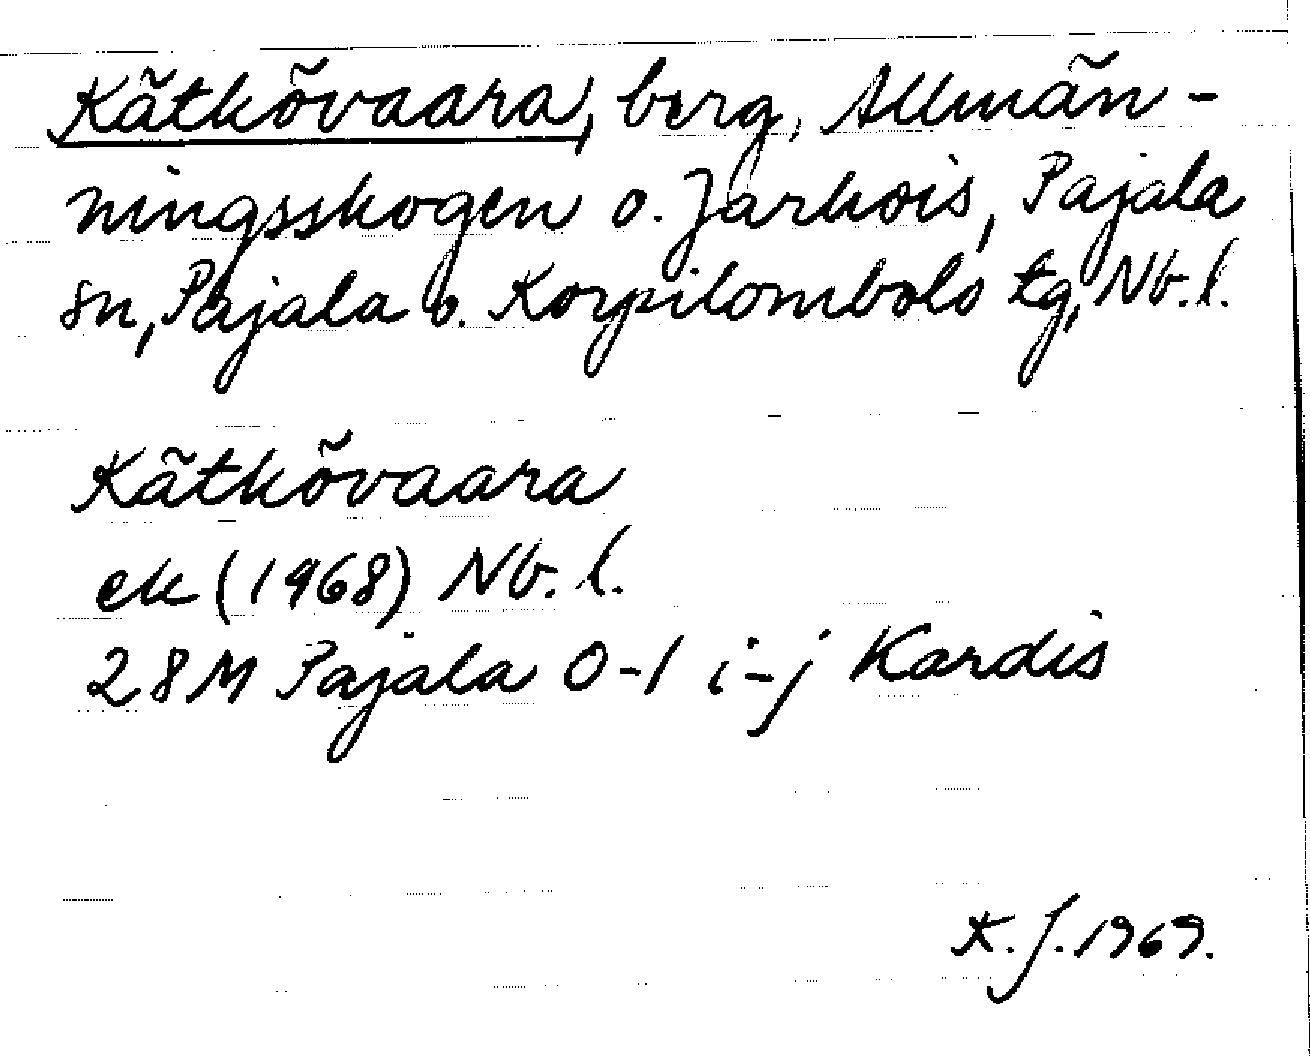 Kätkövaara, berg, Allmän-
ningsskogen o. Jarhois, Pajala
sn, Pajala o. Korpilombolo tg, Nb. l.
Kätkövaara
ek (1968) Nb. l.
28M Pajala 0-1 i-j Kardis
K. J. 1969.